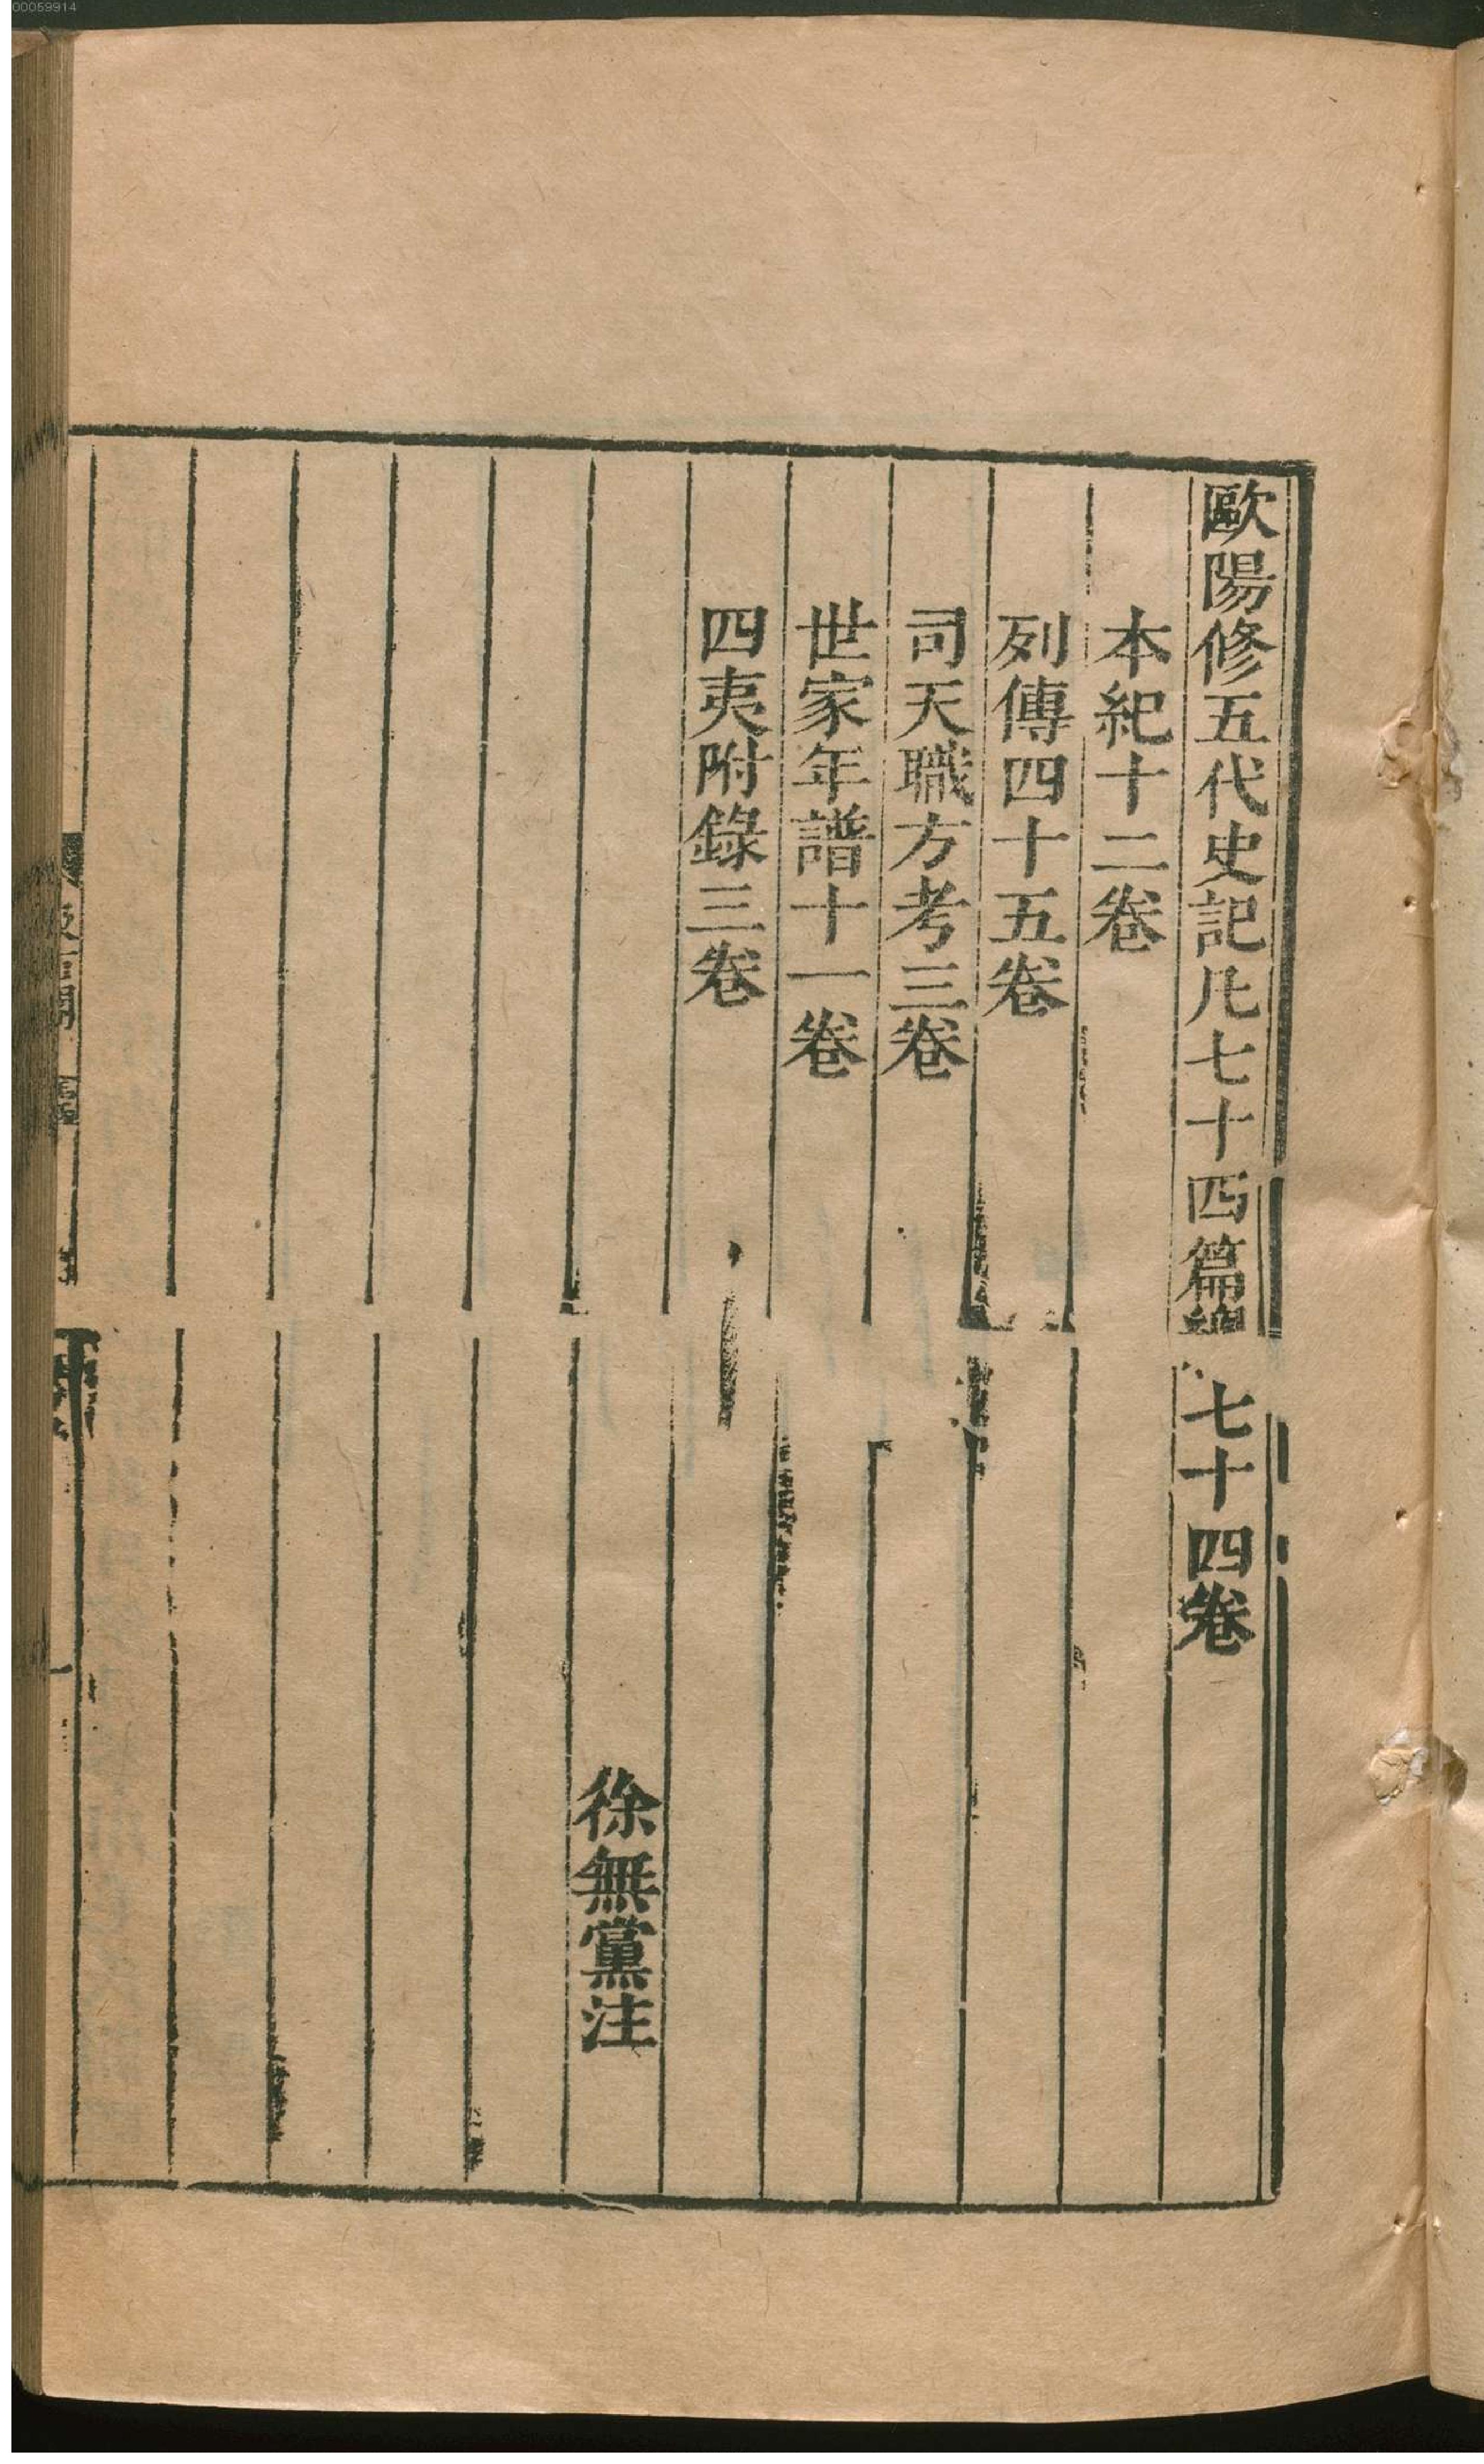 歐陽修五代史記凡七十四篇總七十四卷
本紀十二卷
列傳四十五卷
司天職方考三卷
世家年譜十一卷
四夷附錄三卷
徐無黨注
00059914